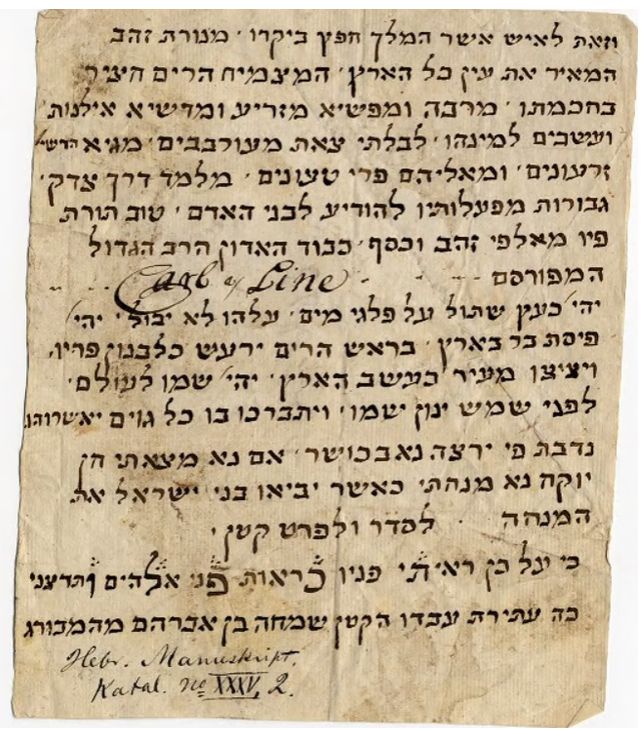 וזאת לאיש אשר המלך חפץ ביקרו · מנורת זהב
המאיר את עין כל הארץ · המצמיח הרים חציר
בחכמתו · מרבה ומפשיא מזריע ומדשיא אילנות
ועשבים למינהו · לבלתי צאת מעורבבים · מגיא
זרעונים · ומאליהם פרי טעונים · מלמד דרך צדק ·
גבורות מפעלותיו להודיע לבני האדם · טוב תורת
פיו מאלפי זהב וכסף · כבוד האדון הרב הגדול
המפורסם Line
יהי׳ כעץ שתול על פלגי מים · עלהו לא יבול · יהי׳
פיסת בר בארץ · בראש הרים ירעש כלבנון פריו
ויציצו מעיר כעשב הארץ · יהי׳ שמו לעולם ·
לפני שמש ינון שמו · ויתברכו בו כל גוים יאשרוהו
נדבת פי ירצה נא בכושר · אם נא מצאתי חן
יוקח נא מנחתי כאשר יביאו בני ישראל את
המנחה · לסדר ולפרט קטן ·
כי על כן ראיתי פניו כראות פני אלהים ותרצני
כה עתירת עבדו הקטן שמחה בן אברהם מהמבורג
Hebr. Manuskript.
Katal. No XXXV, 2.